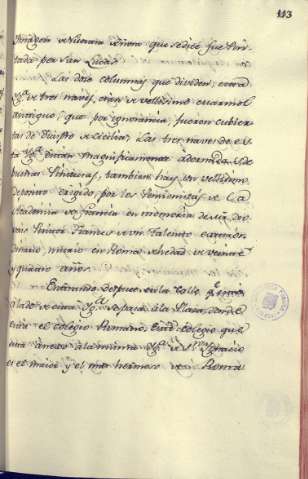 113
Imagen de Nuestra Señora que se dice fue Pin-
tada por San Lucas
Las dose columnas que dividen, esta
Yg.ª en tres naves, eran de vellisimo marmol
antiguo, que por ignorancia, fueron cubier-
tas de Diaspro de Cicilia; Las tres naves de es-
ta Yg.ª estan magnificamente adornadas de
buenas Pinturas, tambien hay un vellisimo
Deposito erigido, por los Pensionistas de la
Academia de Francia en memoria de
Pintor Frances de un Talento extraor-
dinario, murio en Roma de hedad de veinte
y quatro años.
Entrando despues en la Calle q.e
al lado de esta Yg.ª se pasa a la Plaza, donde
esta el colegio Romano, Este colegio que
esta anexo a la misma Yg.ª de S.n Ygnacio
es el maior y el mas hermoso de Roma